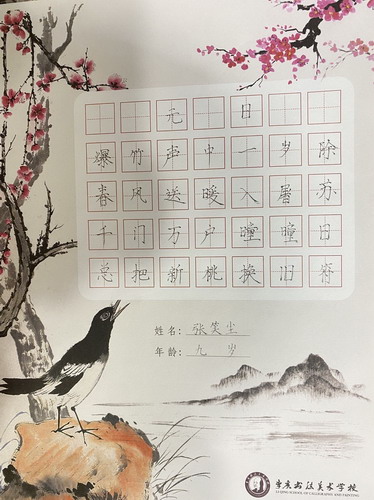 元日
爆竹声中一岁除
春风送暖入屠苏
千门万户曈曈日
总把新桃换旧符
姓名：张笑尘
年龄：九岁
重庆书法美术学校